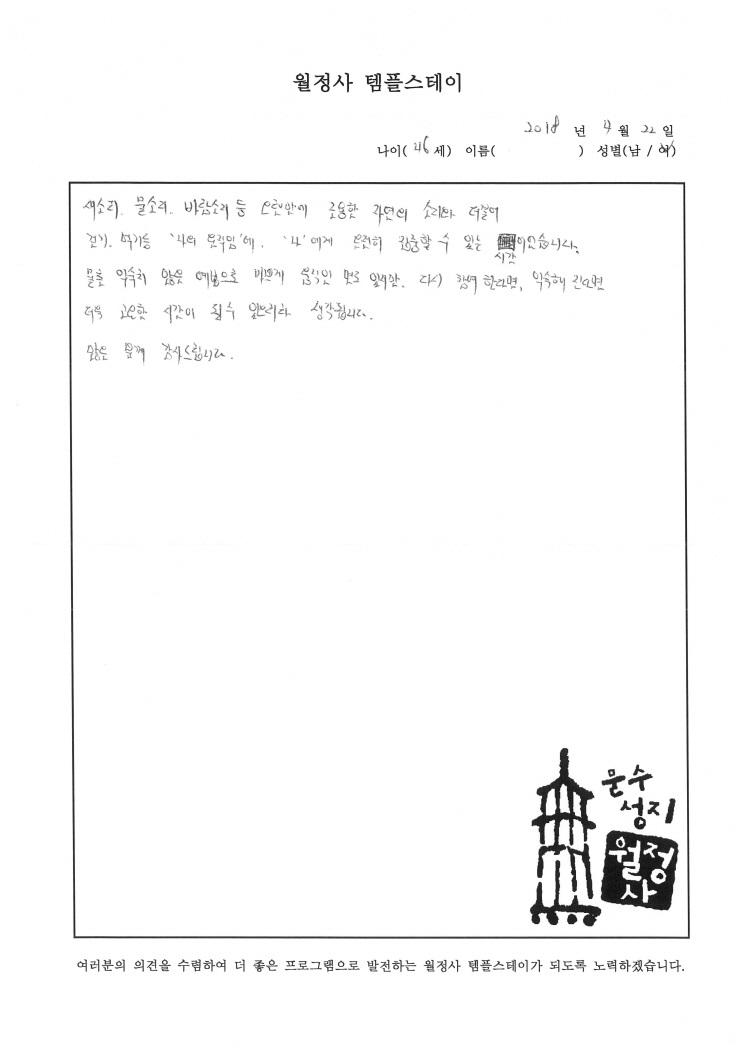 월정사 템플스테이
2018 년 4 월 22 일
나이( 46 세) 이름( ) 성별(남 / 여)
새소리. 물소리.. 바람소리 등 오랜만에 조용한 자연의 소리와 더불어
걷기. 먹기등 '나의 움직임'에. '나'에게 온전히 집중할 수 있는 시간이었습니다.
물론 익숙치 않은 예법으로 바쁘게 움직인 면도 있지만. 다시 참여 한다면, 익숙해 진다면
더욱 고요한 시간이 될수 있으리라 생각됩니다.
많은 분께 감사드립니다.
문수
성지
월정
사
여러분의 의견을 수렴하여 더 좋은 프로그램으로 발전하는 월정사 템플스테이가 되도록 노력하겠습니다.